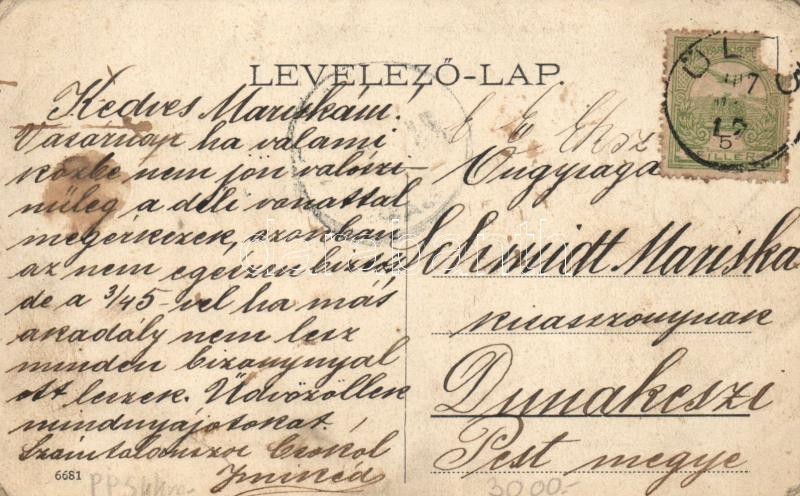 LEVELEZŐ-LAP.
Kedves Mariskám!
Vasárnap ha valami
közbe nem jön valószi-
nűleg a déli vonattal
megérkezek, azonban
az nem egészen bizos,
de a 3/45-vel ha más
akadály nem lesz
minden bizonynyal
ott leszek. Üdvözöllek
mindnyájotokat
Számtalanszor Csókol
Imikéd
6681
Őnagysága
Schmidt Mariska
kisasszonynak
Dunakeszi
Pest megye
5
3000.-